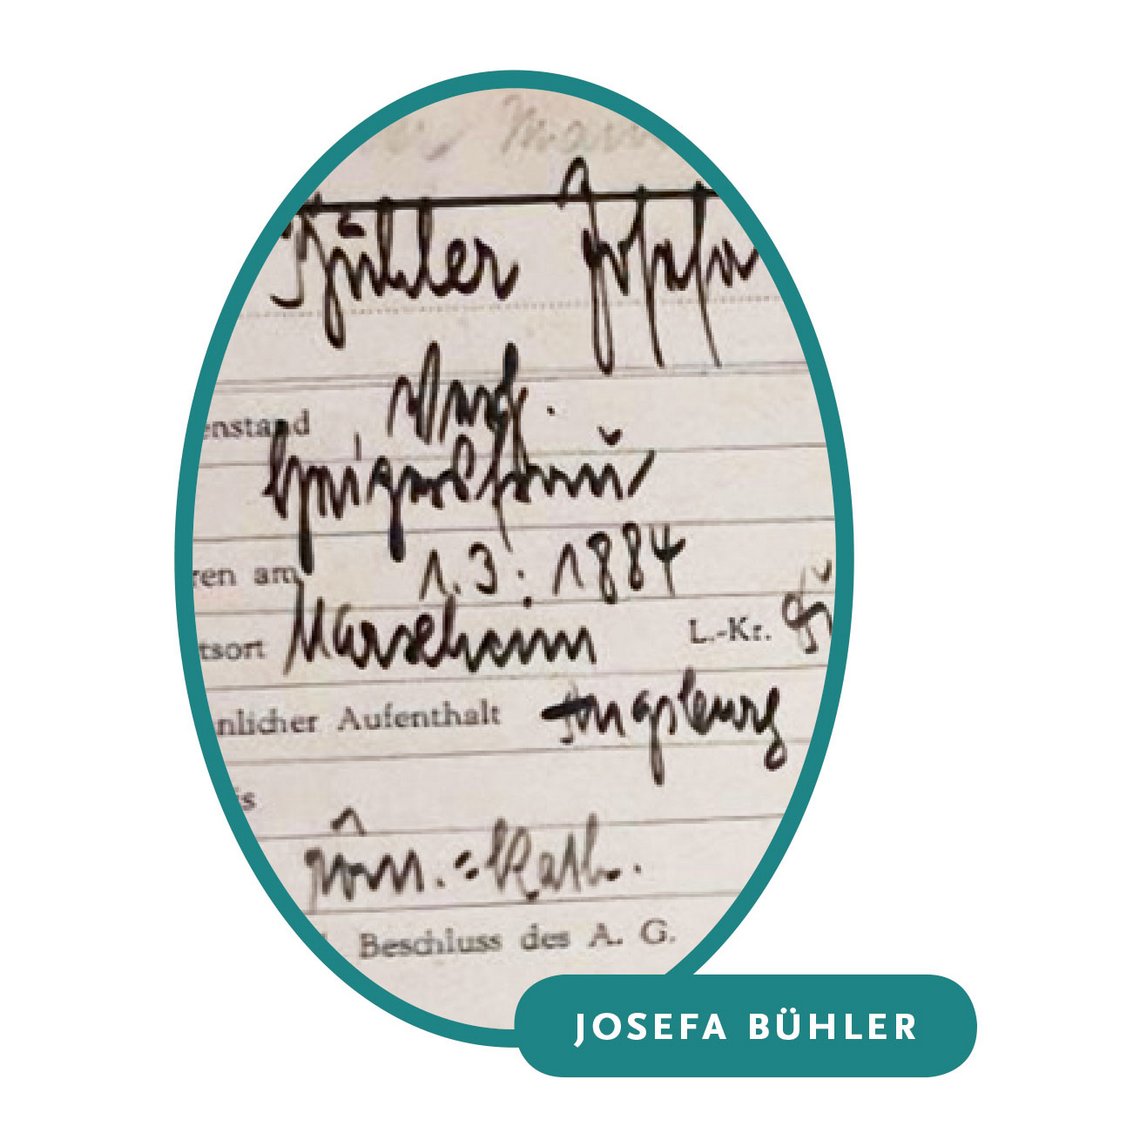 Bühler Josefa
enstand verh.
ren am 1.3.1884
tsort Marxheim L.-Kr.
nlicher Aufenthalt Augsburg
is
röm.=Kath.
Beschluss des A. G.
JOSEFA BÜHLER